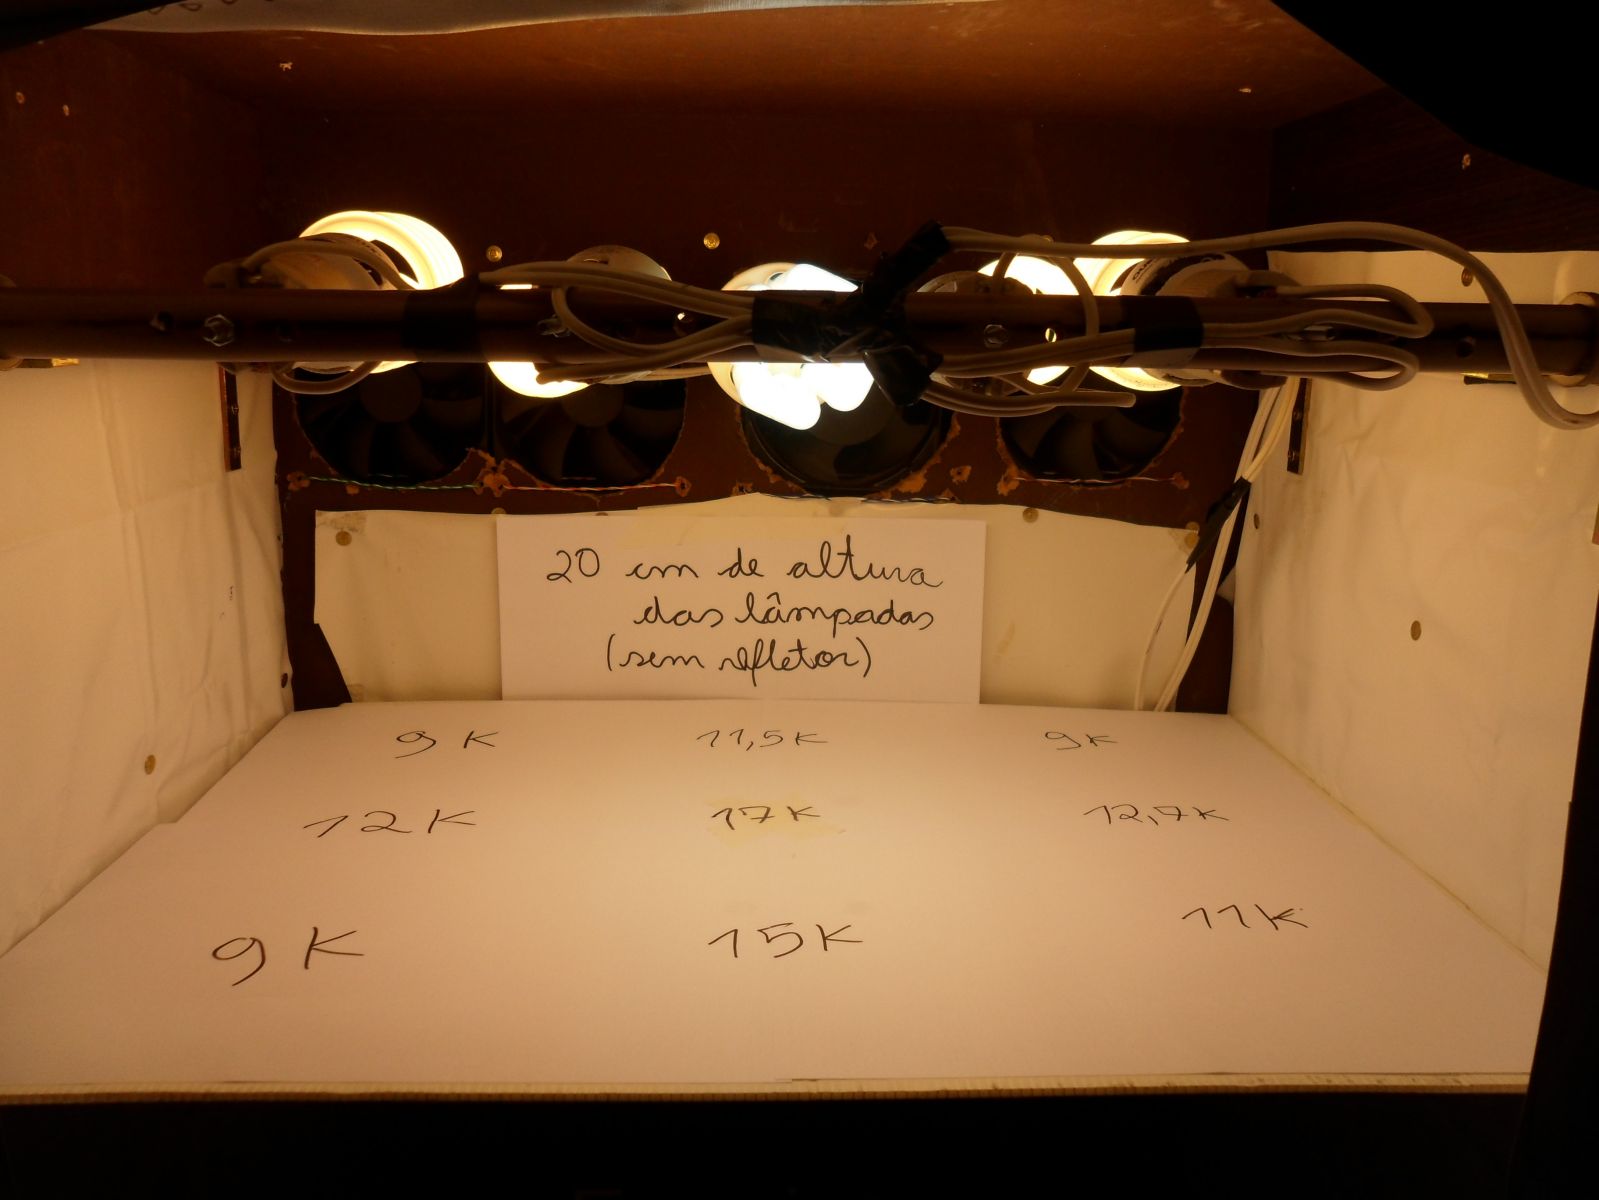 20 cm de altura
das lâmpadas
(sem refletor)
9 K 11,5 K 9 K
12 K 17 K 12,7 K
9 K 15 K 11 K